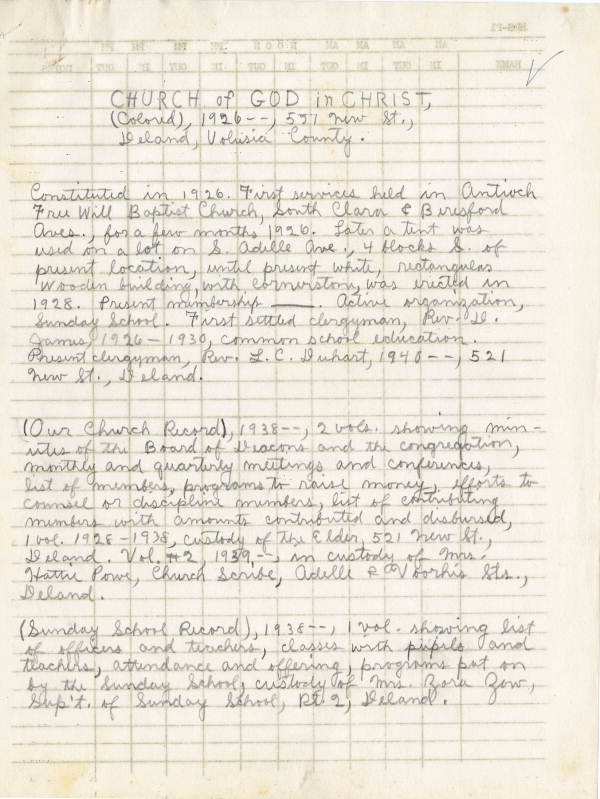 CHURCH of GOD in CHRIST,
(Colored), 1926--, 521 New St.,
Deland, Volusia County.
Constituted in 1926. First services held in Antioch
Free Will Baptist Church, South Clara & Beresford
Aves., for a few months 1926. Later a tent was
used on a lot on S. Adelle Ave., 4 blocks S. of
present location, until present white, rectangular
wooden building, with cornerstone, was erected in
1928. Present membership ____. Active organization,
Sunday School. First settled clergyman, Rev. D.
James, 1926-1930, common school education.
Present clergyman, Rev. L. C. Duhart, 1940--, 521
New St., Deland.
(Our Church Record), 1938--, 2 vols. showing min-
utes of the Board of Deacons and the congregation,
monthly and quarterly meetings and conferences,
list of members, programs to raise money, efforts to
counsel or discipline members, list of contributing
members with amounts contributed and disbursed,
1 vol. 1928-1938, custody of the Elder, 521 New St.,
Deland. Vol. #2, 1939,-- in custody of Mrs.
Hattie Powe, Church Scribe, Adelle & Voorhis Sts.,
Deland.
(Sunday School Record), 1938--, 1 vol. showing list
of officers and teachers, classes with pupils and
teachers, attendance and offering, programs put on
by the Sunday School, custody of Mrs. Zora Zow,
Sup't. of Sunday School, Rt. 2, Deland.